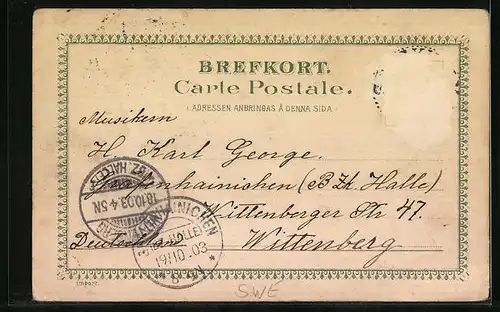 BREFKORT.
Carte Postale.
(ADRESSEN ANBRINGAS Å DENNA SIDA.)
Musikern
H. Karl George.
Gräfenhainichen (Bzk. Halle)
Wittenberger Str 47.
Deutschland Wittenberg
18.10.03.4-5N
GRÄFENHAINICHEN
19/10.03
Import.
SWE